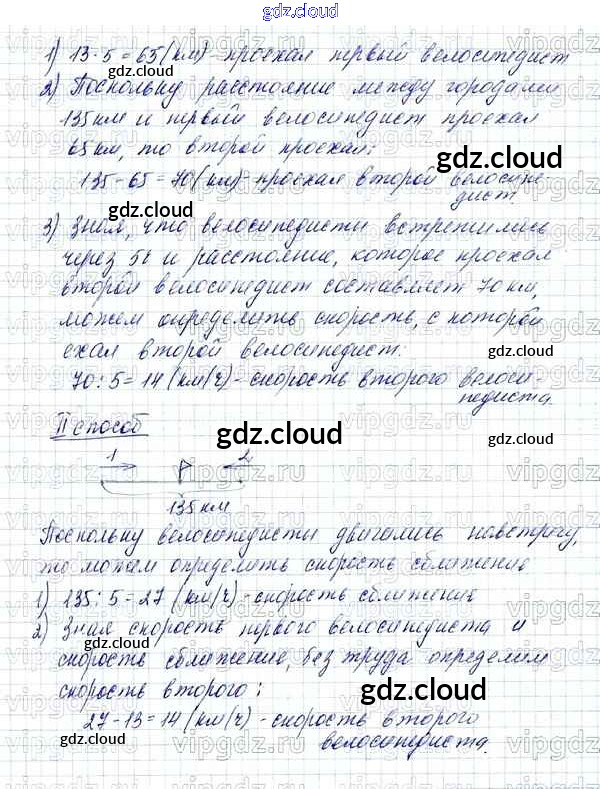 gdz.cloud
1) 13·5=65(км)-проехал первый велосипедист
2) Поскольку расстояние между городами
135 км и первый велосипедист проехал
65 км, то второй проехал:
135-65=70(км)-проехал второй велосипе-
дист.
3) Зная, что велосипедисты встретились
через 5ч и расстояние, которое проехал
второй велосипедист составляет 70 км,
можем определить скорость, с которой
ехал второй велосипедист:
70:5=14(км/ч)-скорость второго велоси-
педиста.
II способ
1 2
135 км
Поскольку велосипедисты двигались навстречу,
то можем определить скорость сближение
1) 135:5=27 (км/ч)-скорость сближение
2) Зная скорость первого велосипедиста и
скорость сближение, без труда определим
скорость второго:
27-13=14(км/ч)-скорость второго
велосипедиста.